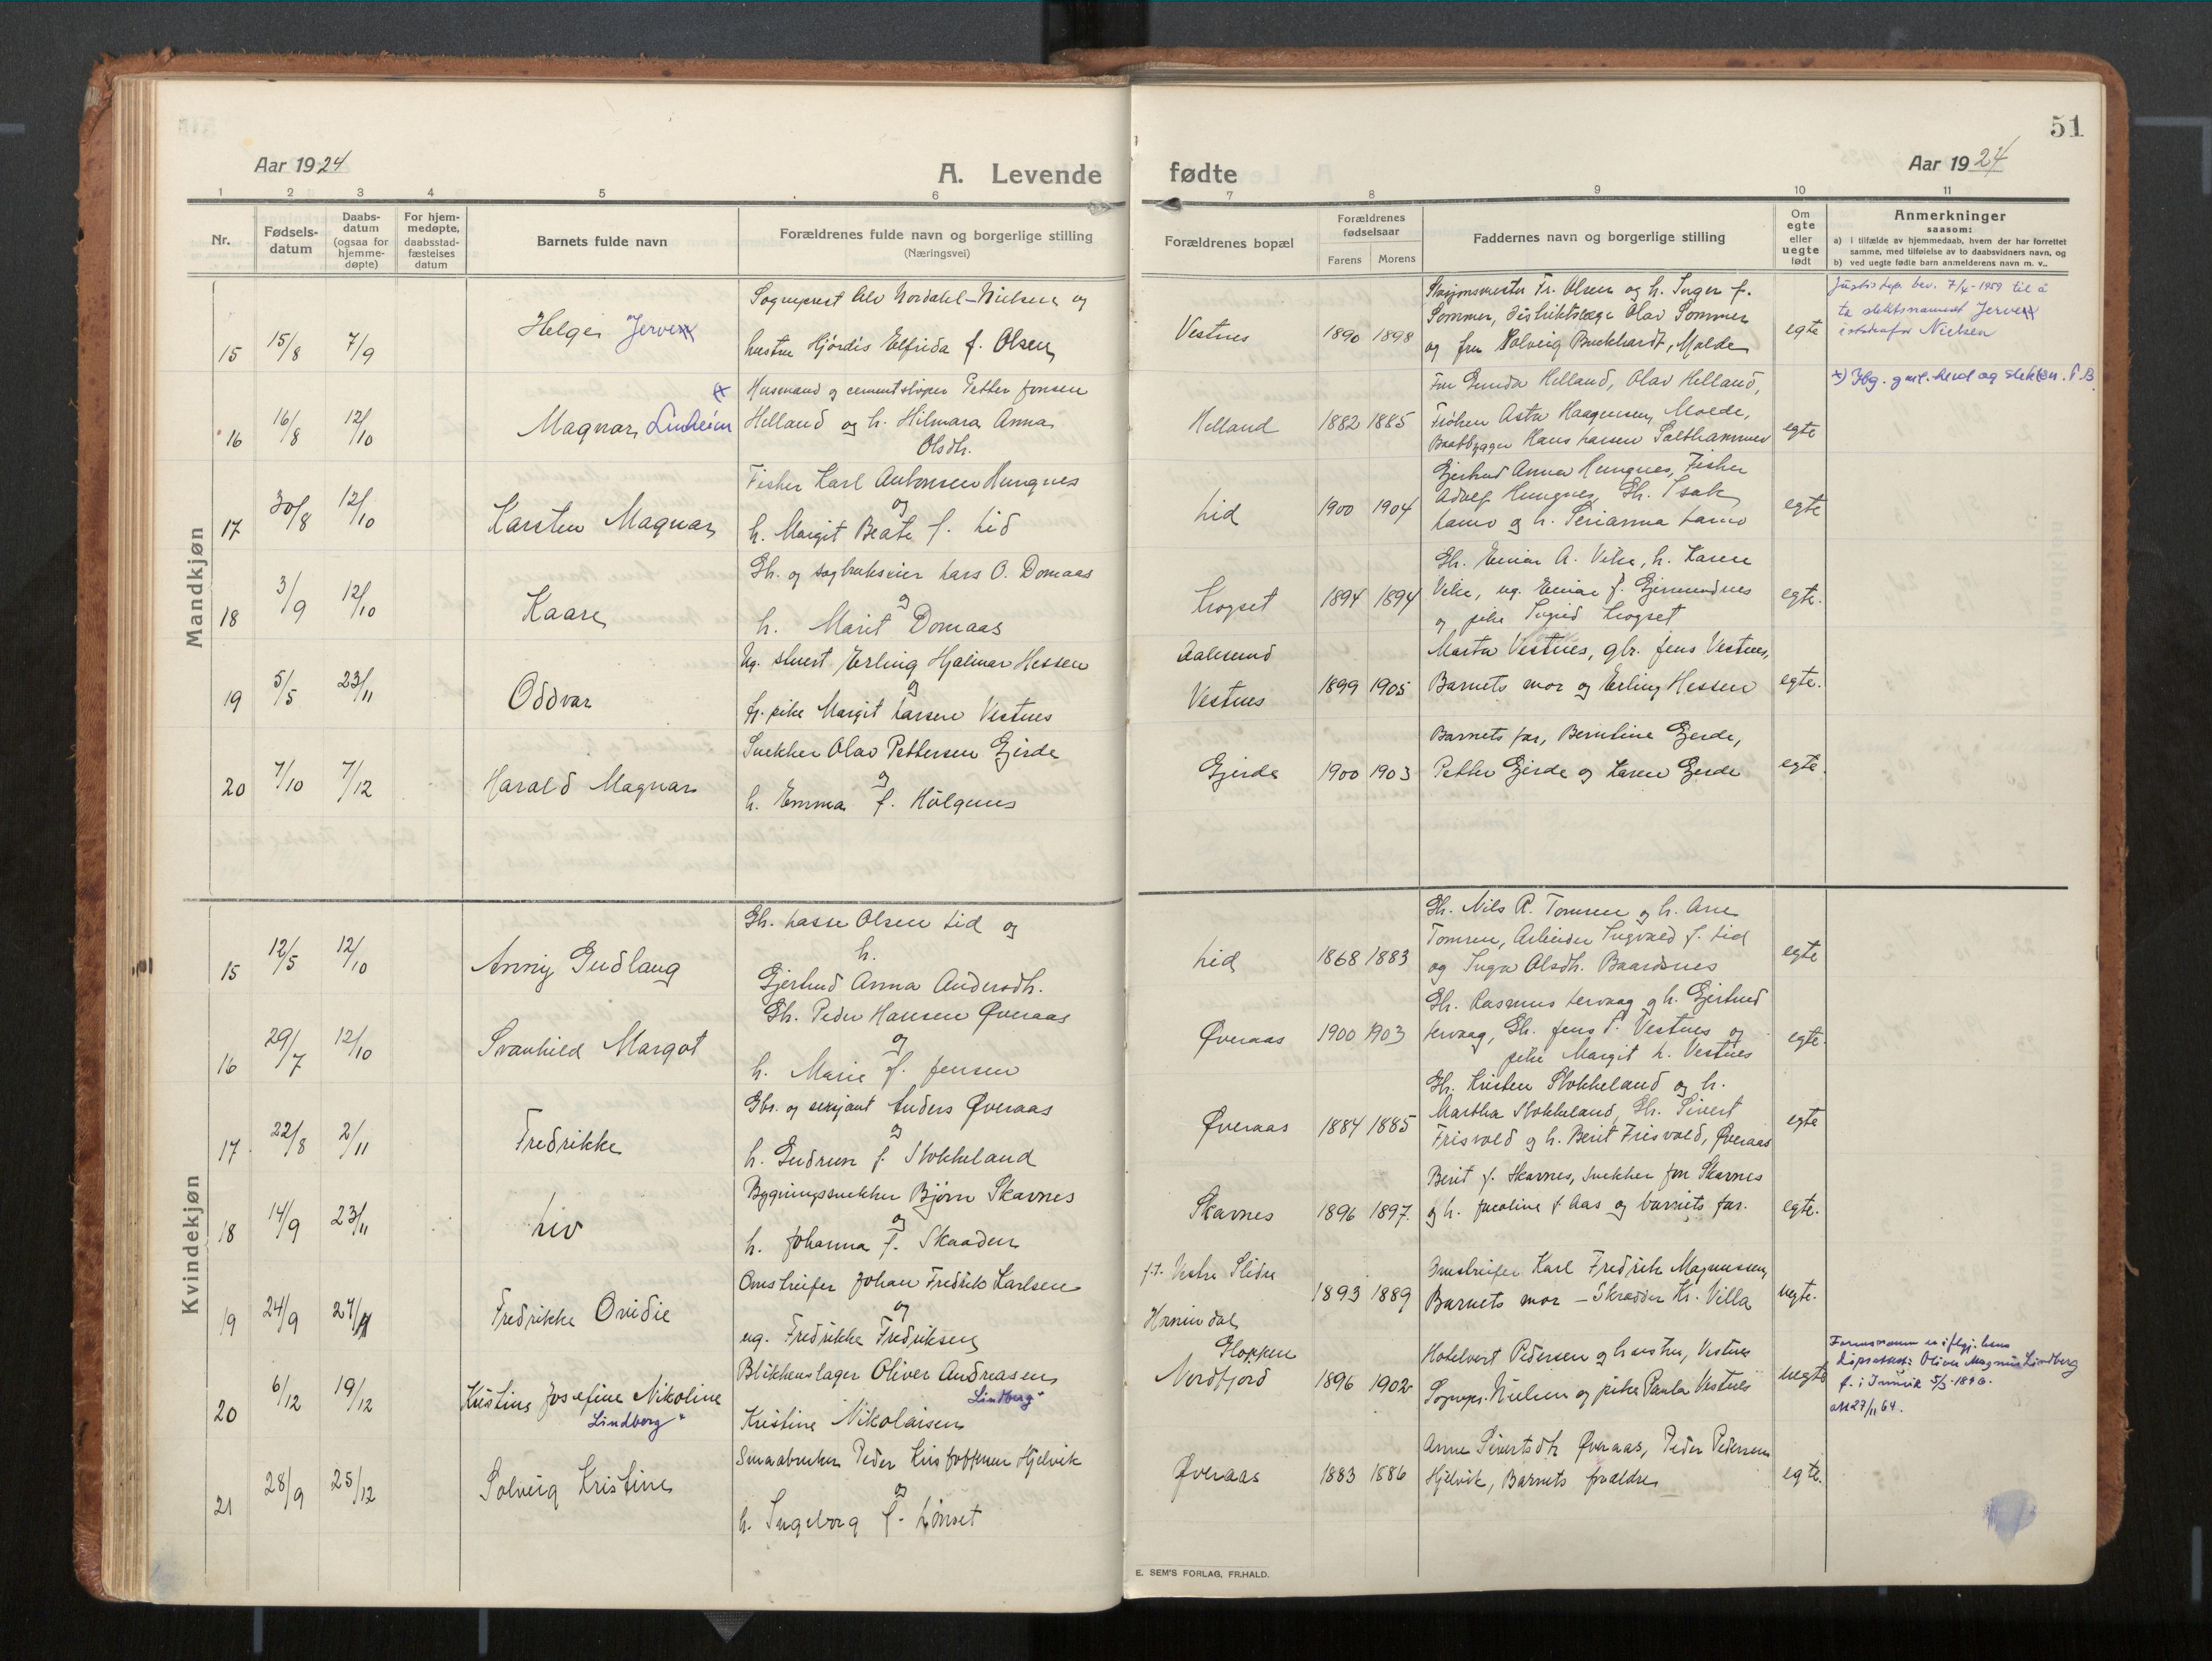 51
Aar 1924
A. Levende
fødte
Aar 1924
1 2 3 4 5 6 7 8 9 10 11
Nr.
Fødsels-
datum
Daabs-
datum
(ogsaa for
hjemme-
døpte)
For hjem-
medøpte,
daabsstad-
fæstelses
datum
Barnets fulde navn
Forældrenes fulde navn og borgerlige stilling
(Næringsvei)
Forældrenes bopæl
Forældrenes
fødselsaar
Farens Morens
Faddernes navn og borgerlige stilling
Om
egte
eller
uegte
født
Anmerkninger
saasom:
a) i tilfælde av hjemmedaab, hvem der har forrettet
samme, med tilføielse av to daabsvidners navn, og
b) ved uegte fødte barn anmelderens navn m. v..
Mandkjøn
15 15/8 7/9 Helge Jervell
Sogneprest Alv Nordahl-Nielsen og
hustru Hjördis Elfrida f. Olsen
Vestnes 1890 1898
Fr. Olsen og h. Inger f.
Sommer, distriktslæge Olav Sommer
og fru Solveig Burkhardt, Molde
egte
Justisdep. bev. 7/4-1959 til å
ta slektsnavnet Jervell
istedenfor Nielsen
16 16/8 12/10 Magnar Lindheim
Husmand og cementstøper Petter Jonsen
Helland og h. Hilmara Anna
Olsdtr.
Helland 1882 1885
Fru Gunda Helland, Olav Helland,
Frøken Asta Haagensen, Molde,
Baatbygger Hans Larsen Salthammer
egte
17 30/8 12/10 Karsten Magnar
Fisker Karl Antonsen Hungnes
og
h. Margit Beate f. Lid
Lid 1900 1904
Gjertrud Anna Hungnes, Fisker
Adolf Hungnes, Gb. Isak
egte
18 3/9 12/10 Kaare
Gb. og sagbrukseier Lars O. Domaas
og
h. Marit Domaas
Krogset 1894 1894
Gb. Einar A. Vike, h. Karen
Vike, ug. Einar f. Gjermundnes
og pike Sigrid Krogset
egte.
19 5/5 23/11 Oddvar
Ug. stuert Erling Hjalmar Hessen
og
fr. pike Margit Larsen Vestnes
Aalesund
Vestnes 1899 1905
Marta Vestnes, gbr. Jens Vestnes,
Barnets mor og Erling Hessen
egte.
20 7/10 7/12 Harald Magnar
Snekker Olav Pettersen Gjerde
og
h. Emma f. Holgnes
Gjerde 1900 1903
Barnets far, Berntine Gjerde,
Petter Gjerde og Karen Gjerde
egte.
Kvindekjøn
15 12/5 12/10 Anny Gudlaug
Gb. Lasse Olsen Lid og
h.
Gjertrud Anna Andersdtr.
Lid 1868 1883
Gb. Nils R. Tomren og h. Ane
Tomren, Arbeider Ingvald f. Lid
og Inga Olsdtr. Baardsnes
egte
16 29/7 12/10 Svanhild Margot
Gb. Peder Hansen Øveraas
og
h. Marie f. Jensen
Øveraas 1900 1903
Gb. Rasmus Lervaag og h. Gjertrud
Lervaag, Gb. Jens P. Vestnes og
pike Margit L. Vestnes
egte.
17 22/8 2/11 Fredrikke
Gbr. og sersjant Anders Øveraas
og
h. Gudrun f. Stokkeland
Øveraas 1884 1885
Gb. Kristen Stokkeland og h.
Martha Stokkeland, Gb. Sivert
Frisvold og h. Berit Frisvold, Øveraas
egte
18 14/9 23/11 Liv
Bygningssnekker Bjørn Skarnes
og
h. Johanna f. Skaaden
Skarnes 1896 1897.
Berit f. Skarnes, snekker Jon Skarnes
og h. Jacoline f. Aas og barnets far.
egte.
19 24/9 27/11 Fredrikke Ovidie
Omstreifer Johan Fredrik Karlsen
og
ug. Fredrikke Fredriksen
f.t. Vestre Slidre
Hornindal 1893 1889
Omstreifer Karl Fredrik Magnussen
Barnets mor – Skrædder Kr. Villa
uegte.
20 6/12 19/12 Kristine Josefine Nikoline
Lindberg
Blikkenslager Oliver Andreasen
Lindberg
Kristine Nikolaisen
Gloppen
Nordfjord 1896 1902
Hotelvert Pedersen og hustru, Vestnes
Sognepr. Nielsen og pike Paula Vestnes
uegte
Oliver Magnus Lindberg
f. i Innvik 5/3-1896.
27/11 64.
21 28/9 25/12 Solveig Kristine
Smaabruker Peder Kristoffersen Hjelvik
og
h. Ingeborg f. Lønset
Øveraas 1883 1886
Anne Sivertsdtr. Øveraas, Peder Pedersen
Hjelvik, Barnets forældre
egte.
E. SEM'S FORLAG, FR.HALD.